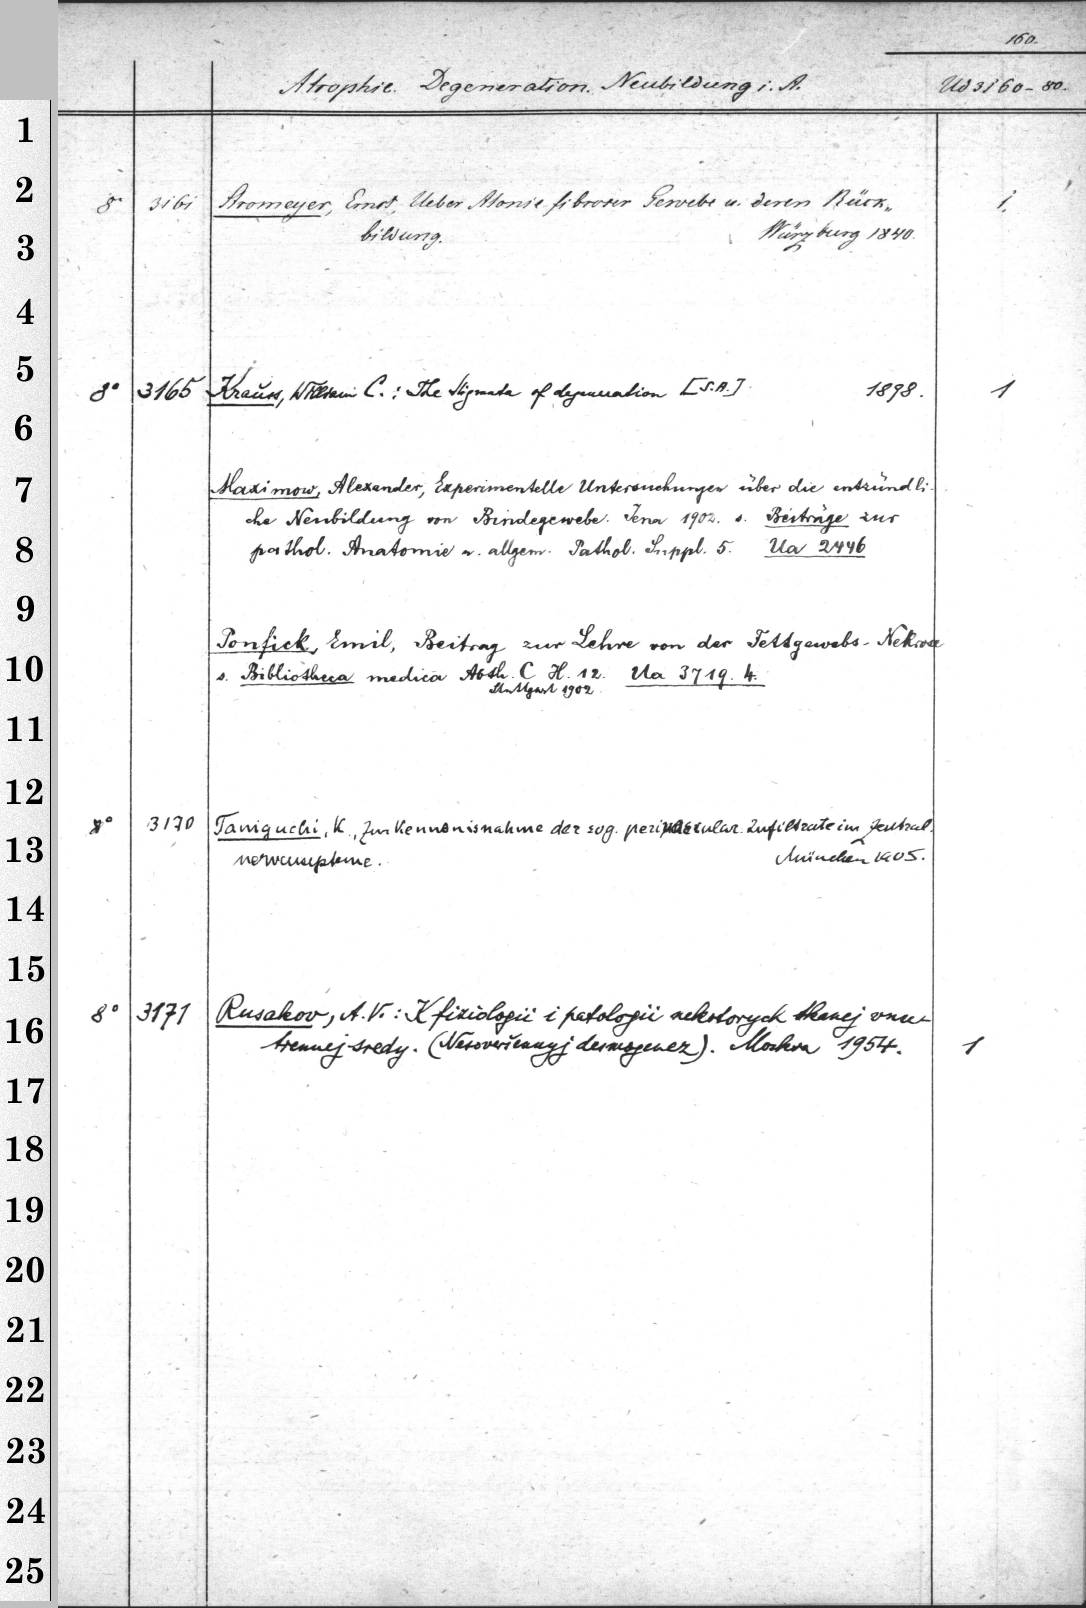 160.
Atrophie. Degeneration. Neubildung i. A. Ud 3160-80.
1
2
8° 3161 Stromeyer, Ernst, Ueber Atonie fibroser Gewebe u. deren Rück- 1.
3
bildung. Würzburg 1840.
4
5
8° 3165 Krauss, William C.: The Stigmata of degeneration [S.A.] 1898. 1
6
7
Maximow, Alexander, Experimentelle Untersuchungen über die entzündli-
che Neubildung von Bindegewebe. Jena 1902. s. Beiträge zur
8
pathol. Anatomie u. allgem. Pathol. Suppl. 5. Ua 2446
9
Ponfick, Emil, Beitrag zur Lehre von der Fettgewebs-Nekrose
10
s. Bibliotheca medica Abth. C H. 12. Ua 3719. 4.
Stuttgart 1902.
11
12
8° 3170 Taniguchi, K., Zur Kenntnisnahme der sog. perivascular. Infiltrate im Zentral-
13
nervensysteme. München 1905.
14
15
8° 3171 Rusakov, A.V.: K fiziologii i patologii nekotorych tkanej vnu-
16
trennej sredy. (Nesoveršennyj desmogenez). Moskva 1954. 1
17
18
19
20
21
22
23
24
25